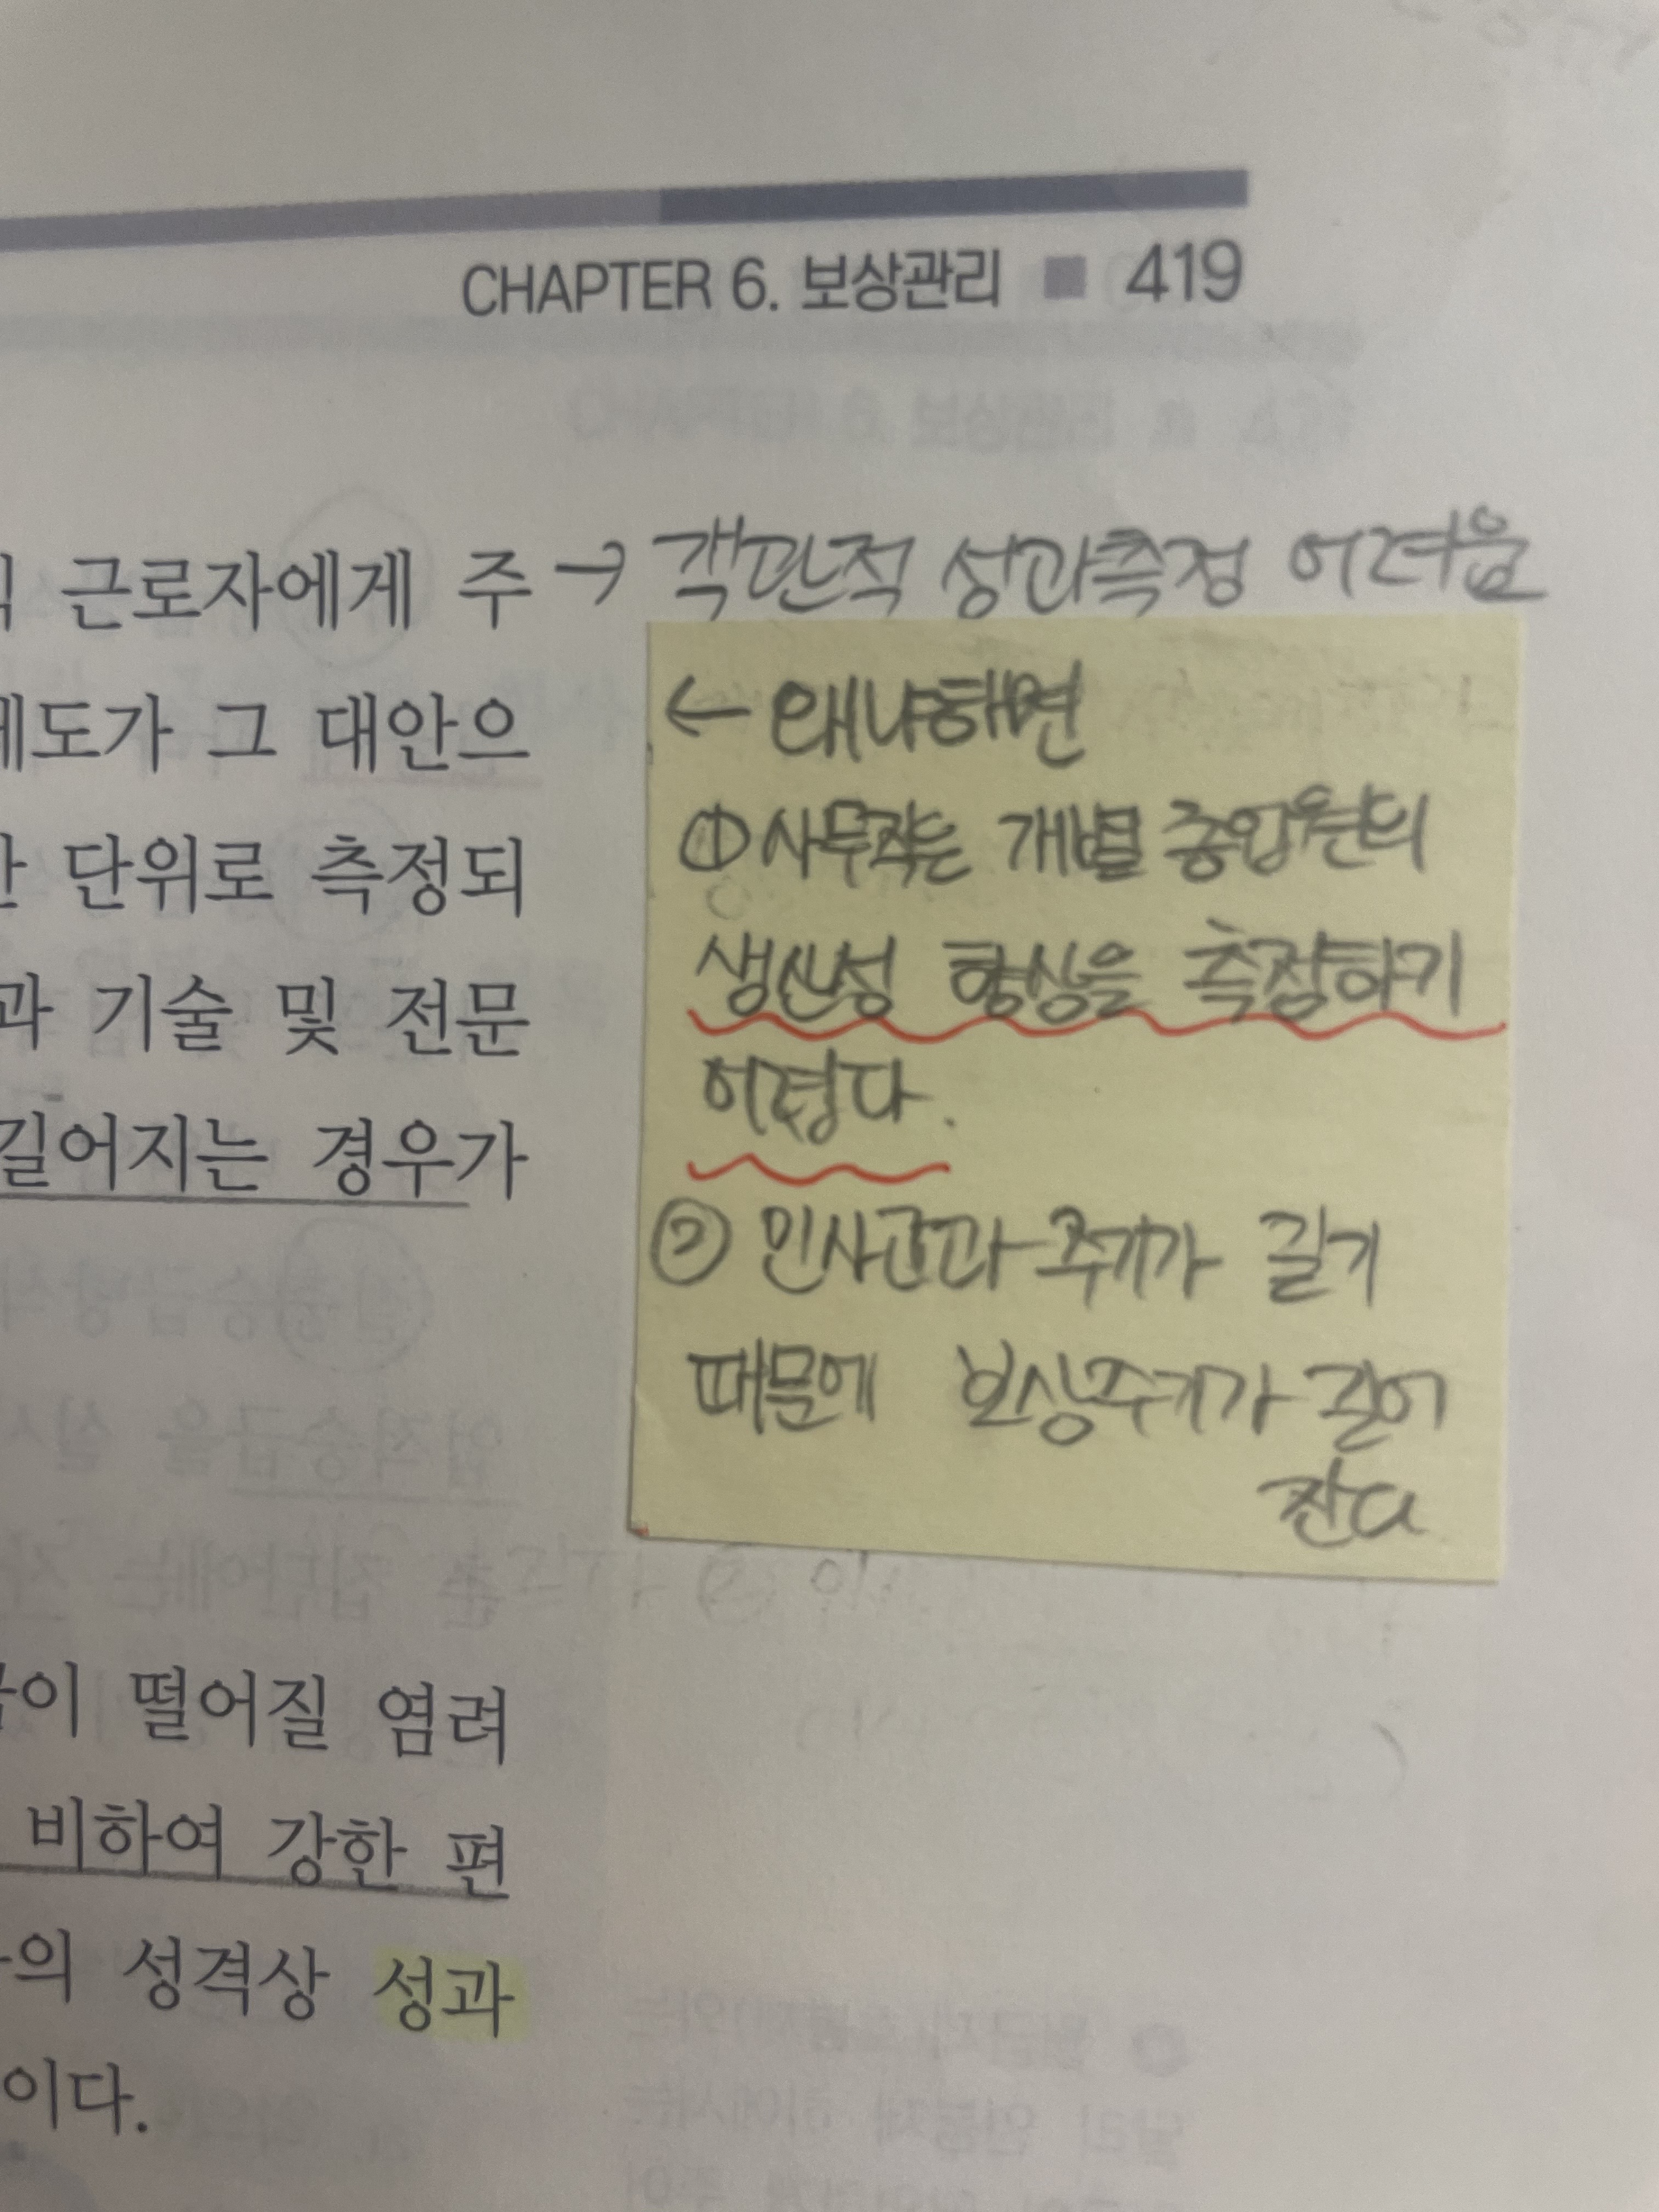 CHAPTER 6. 보상관리 ■ 419
근로자에게 주 → 객관적 성과측정 어려움
제도가 그 대안으
← 왜냐하면
단위로 측정되
① 사무직은 개별 종업원의
과 기술 및 전문
생산성 향상을 측정하기
어렵다.
길어지는 경우가
② 인사고과 주기가 길기
때문에 보상주기가 길어
진다
이 떨어질 염려
비하여 강한 편
의 성격상 성과
이다.